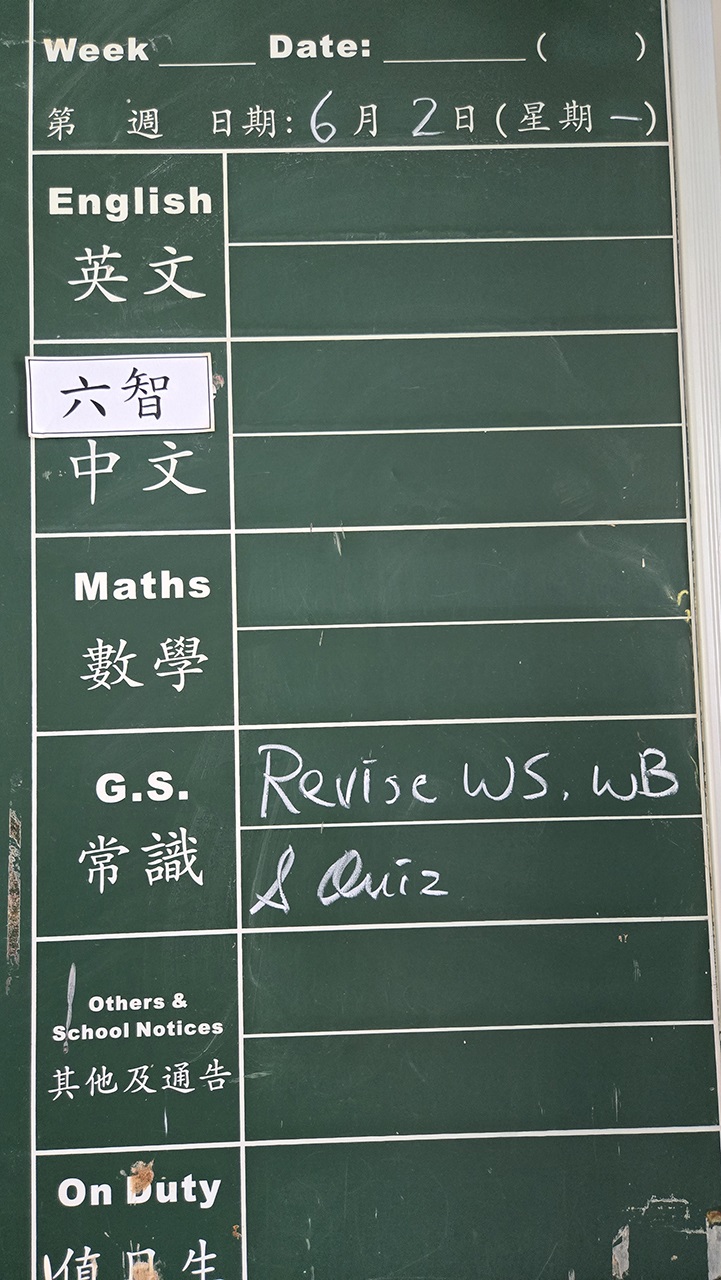 Week Date: ( )
第 週 日期: 6月 2日 (星期 一)
English
英文
六智
中文
Maths
數學
G.S.
Revise WS, WB
常識
& Quiz
Others &
School Notices
其他及通告
On Duty
值日生